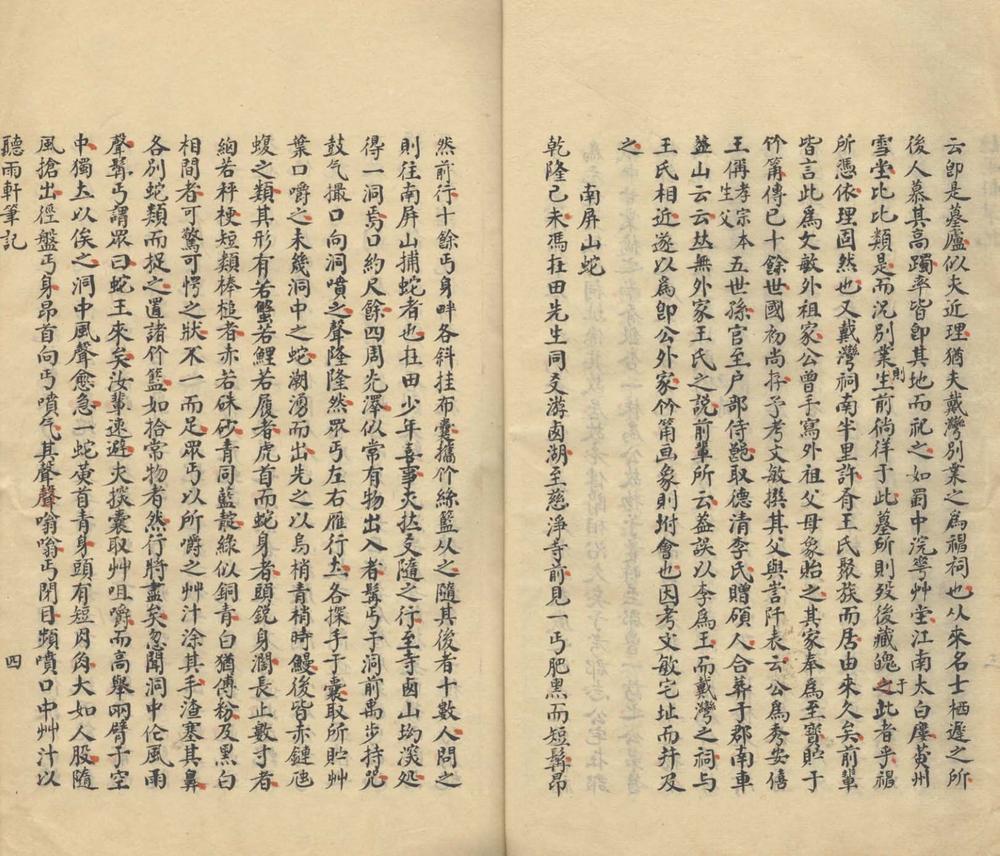 云卽是墓廬似夫近理猶夫戴灣別業之爲禓祠也从來名士栖遲之所
後人慕其高躅率皆卽其地而祀之如蜀中浣芲艸堂江南太白庫黃州
雪堂比比類是而況別業生前徜徉于此墓所則歿後藏魄之此者乎禓
則
于
所憑依理固然也又戴灣祠南半里許有王氏聚族而居由來久矣前輩
皆言此爲文敏外祖家公曾手寫外祖父母象貽之其家奉爲至寶貯于
竹筩傳已十餘世國初尚存予考文敏撰其父與訔阡表云公爲秀安僖
王偁孝宗本生父五世孫官至户部侍郎取德清李氏贈碩人合葬于郡南車
盖山云云㚎無外家王氏之說前輩所云葢誤以李爲王而戴灣之祠与
王氏相近遂以爲卽公外家竹筩画象則坿會也因考文敏宅址而幷及
之
南屏山蛇
乾隆己未馮拄田先生同爻游鹵湖至慈淨寺前見一丐肥黑而短髯昂
然前行十餘丐身畔各斜挂布囊攜竹絲籃从之隨其後者十數人問之
則往南屏山捕蛇者也拄田少年喜事夫㚎爻隨之行至寺鹵山㘭溪処
得一洞焉口約尺餘四周光澤似常有物出入者髯丐于洞前禹步持咒
鼓气撮口向洞噴之聲隆隆然眾丐左右雁行立各探手于囊取所貯艸
葉口嚼之未幾洞中之蛇潮湧而出先之以烏梢青梢時鰻後皆赤鏈虺
蝮之類其形有若蟹若鯉若履者虎首而蛇身者頭銳身濶長止數寸者
絢若秤梗短類棒槌者赤若硃砂青同藍靛綠似銅青白猶傅粉及黑白
相間者可驚可愕之狀不一而足眾丐以所嚼之艸汁涂其手渣塞其鼻
各別蛇類而捉之置諸竹籃如拾常物者然行將盡矣忽聞洞中佮風雨
聲髯丐謂眾曰蛇王來矣汝輩速避夫探囊取艸咀嚼而高舉兩臂于空
中獨立以俟之洞中風聲愈急一蛇黃首青身頭有短肉肉大如人股隨
風搶出徑盤丐身昂首向丐噴气其聲聲嗡嗡丐閉目頻噴口中艸汁以
聽雨軒筆記
四